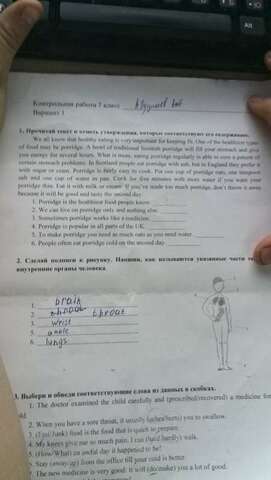 Alt
Контрольная работа 7 класс
Вариант 1
1. Прочитай текст и отметь утверждения, которые соответствуют его содержанию.
We all know that healthy eating is very important for keeping fit. One of the healthiest types
of food may be porridge. A bowl of traditional Scottish porridge will fill your stomach and give
you energy for several hours. What is more, eating porridge regularly is able to cure a patient of
certain stomach problems. In Scotland people eat porridge with salt, but in England they prefer it
with sugar or cream. Porridge is fairly easy to cook. Put one cup of porridge oats, one teaspoon
salt and one cup of water in pan. Cook for five minutes with more water if you want your
porridge thin. Eat it with milk or cream. If you've made too much porridge, don't throw it away
because it will be good and tasty the second day.
1. Porridge is the healthiest food people know.
2. We can live on porridge only and nothing else.
3. Sometimes porridge works like a medicine.
4. Porridge is popular in all parts of the UK.
5. To make porridge you need as much oats as you need water.
6. People often eat porridge cold on the second day.
2. Сделай подписи к рисунку. Напиши, как называются указанные части
внутренние органы человека
1. brain
2. throat
3. wrist
5. ankle
6. lungs
3. Выбери и обведи соответствующие слова из данных в скобках.
1. The doctor examined the child carefully and (prescribed/recovered) a medicine for
2. When you have a sore throat, it usually (aches/hurts) you to swallow.
3. (Fast/Junk) food is the food that is quick to prepare.
4. My knees give me so much pain, I can (hard/hardly) walk.
5. (How/What) an awful day it happened to be!
6. Stay (away/up) from the office till your cold is better.
7. The new medicine is very good: It will (do/make) you a lot of good.